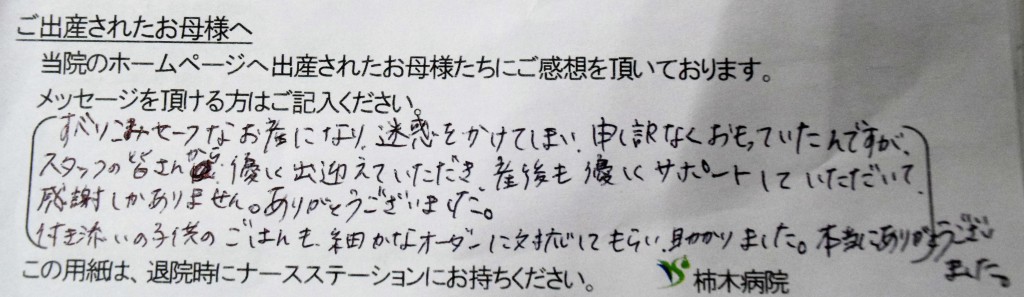 ご出産されたお母様へ
当院のホームページへ出産されたお母様たちにご感想を頂いております。
メッセージを頂ける方はご記入ください。
すべりこみセーフなお産になり、迷惑をかけてしまい、申し訳なくおもっていたんですが、
スタッフの皆さんから、優しく出迎えていただき、産後も優しくサポートしていただいて、
感謝しかありません。ありがとうございました。
付き添いの子供のごはんも、細かなオーダーに対応してもらい、助かりました。本当にありがとうござい
ました。
この用紙は、退院時にナースステーションにお持ちください。
柿木病院